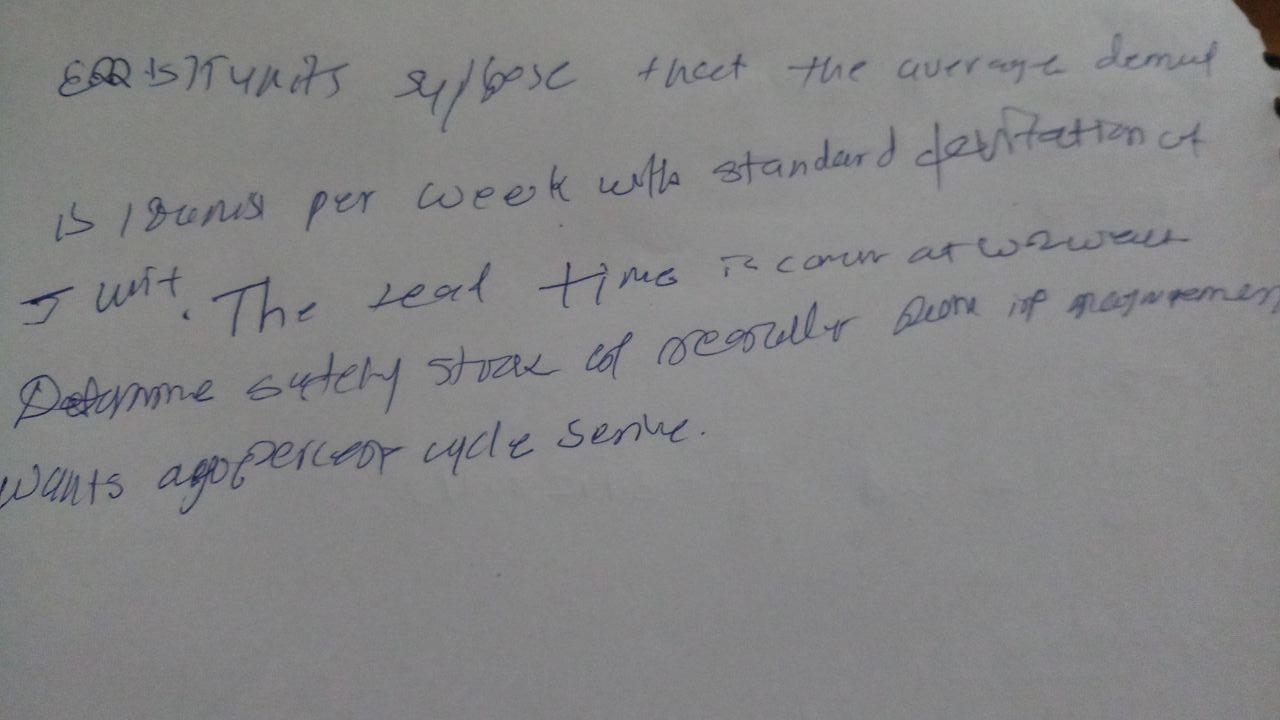 EOQ is 75 units suppose that the average demand
is 18 units per week with standard deviation of
5 unit. The lead time is at 2 week
Determine safety stock of if management
wants a 90 percent cycle servive.